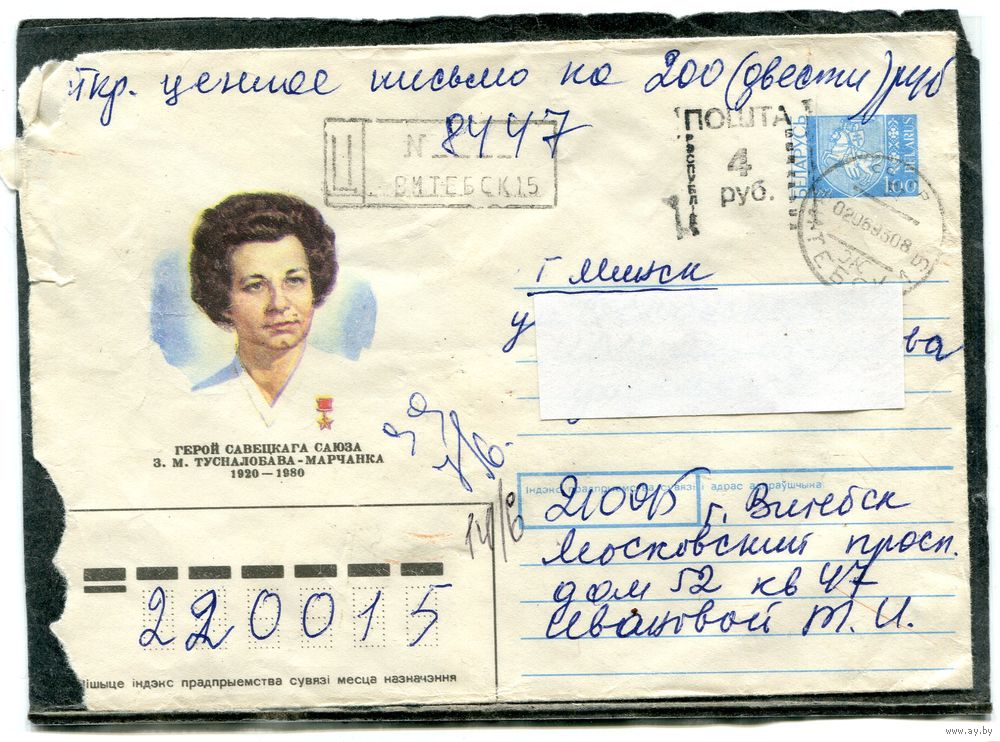 ткр. ценное письмо на 200 (двести) руб
Ц
N 8447
ВИТЕБСК 15
ПОШТА
4
руб.
БЕЛАРУСЬ
1992
100
BELARUS
020693 08
г Минск
у
ва
ГЕРОЙ САВЕЦКАГА САЮЗА
З. М. ТУСНАЛОБАВА-МАРЧАНКА
1920—1980
14/6
Індэкс прадпрыемства сувязі і адрас адпраўшчыка
210015 г. Витебск
Московский просп.
дом 52 кв 47
Ивановой Т. И.
220015
ішыце індэкс прадпрыемства сувязі месца назначэння
www.ay.by